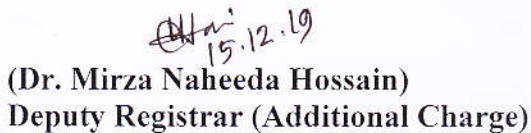 15.12.19
(Dr. Mirza Naheeda Hossain)
Deputy Registrar (Additional Charge)